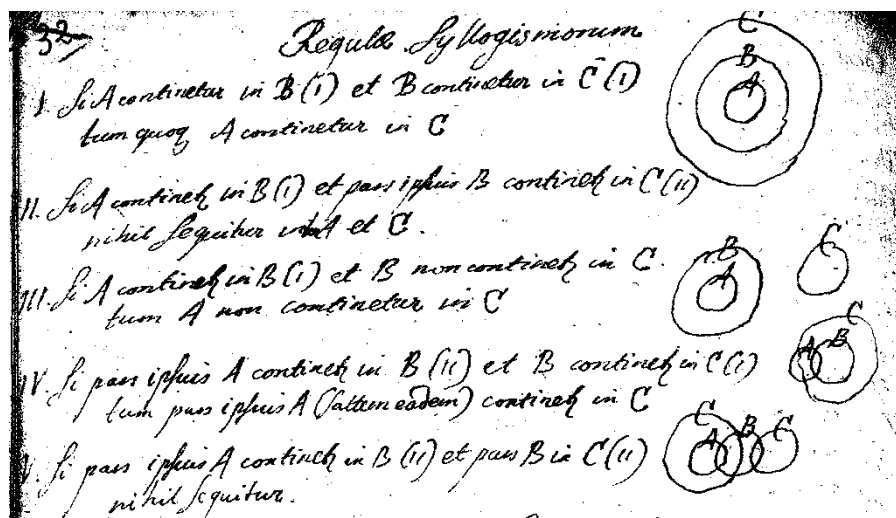 32
Regulæ Syllogismorum
I. Si A continetur in B (I) et B continetur in C (I)
tum quoq A continetur in C
C
B
A
II. Si A continetꝫ in B (I) et pars ipsius B continetꝫ in C (II)
nihil sequitur A et C.
III. Si A continetꝫ in B (I) et B non continetꝫ in C.
tum A non continetur in C
B
A
C
IV. Si pars ipsius A continetꝫ in B (II) et B continetꝫ in C (I)
tum pars ipsius A (saltem eadem) continetꝫ in C
C
A B
V. Si pars ipsius A continetꝫ in B (II) et pars B in C (II)
nihil sequitur.
C B C
A